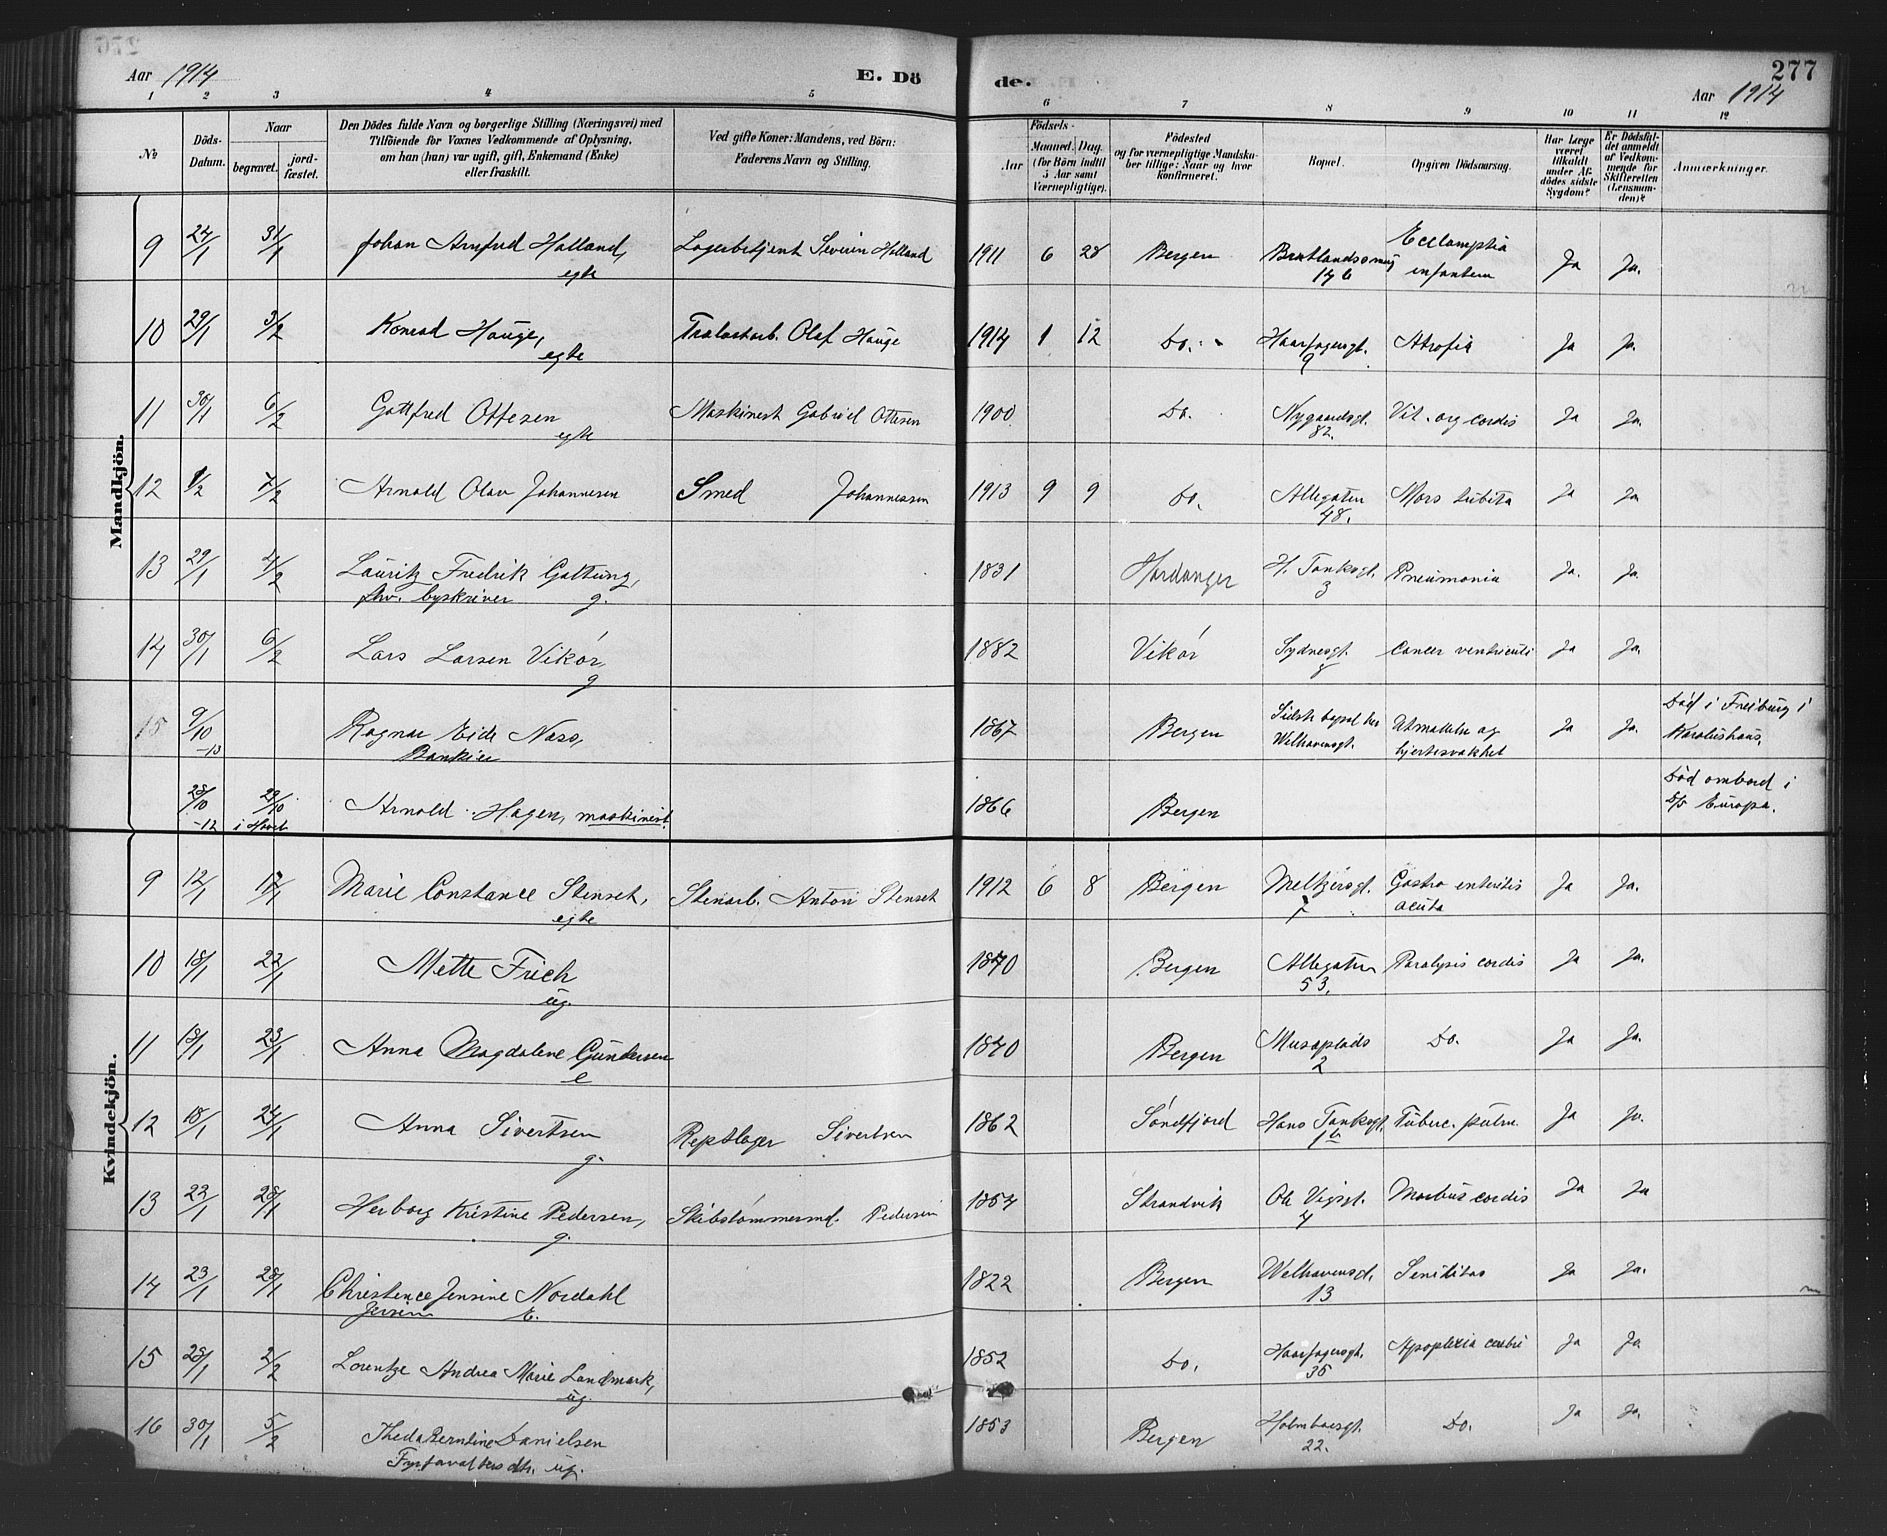 Aar 1914
E. Dö
de.
277
Aar 1914
1 2 3 4 5 6 7 8 9 10 11 12
No
Döds-Datum.
Naar
begravet.
jord-fæstet.
Den Dödes fulde Navn og borgerlige Stilling (Næringsvei) med
Tilföiende for Voxnes Vedkommende af Oplysning,
om han (hun) var ugift, gift, Enkemand (Enke)
eller fraskilt.
Ved gifte Koner: Mandens, ved Börn:
Faderens Navn og Stilling.
Födsels-
Aar
Maaned. Dag.
(for Börn indtil
5 Aar samt
Værnepligtige).
Födested
og for værnepligtige Mandsku-
ber tillige: Naar og hvor
konfirmeret.
Bopæl.
Opgiven Dödsaarsag.
Har Læge
været
tilkaldt
under Af-
dödes sidste
Sygdom?
Er Dödsfal-
det anmeldt
af Vedkom-
mende for
Skifteretten
(Lensman-
den)?
Anmærkninger.
Mandkjön.
9 24/1 31/1 Johan Arnfred Halland, Lagerbetjent Severin Halland 1911 6 28 Bergen Eclampsia Ja Ja.
egte 14b infantum
10 29/1 3/2 Konrad Hauge, Olaf Hauge 1914 1 12 Do. Haarfagersgt. Atrofia Ja Ja.
egte 9
11 30/1 6/2 Gottfred Ottesen Maskinest Gabriel Ottesen 1900 Do. Nygaardsgt. Vit. org cordis Ja Ja.
egte 82.
12 1/2 7/2 Arnold Olav Johannesen Smed Johannessen 1913 9 9 Do. Allegaten Mors subita Ja Ja
48.
13 29/1 4/2 Lauritz Fredrik Galtung, 1831 Hardanger H. Tanksgt. Pneumonia Ja. Ja.
fhv. byskriver g. 3
14 30/1 6/2 Lars Larsen Vikør, 1882 Vikør Sydnesgt. Cancer ventriculi Ja Ja.
g 8
15 9/10 -13 Ragnar Eide Nass, 1867 Bergen Sidste bopæl her Utmattelse og Ja Ja. Død i Freiburg i
Bankier Welhavensgt. hjertesvakhet
28/10 -12 29/10 Arnold Hagen, maskinist. 1866 Bergen Død ombord i
i Havet D/S Europa.
Kvindekjön.
9 12/1 17/1 Marie Constance Stenset, Stenarb. Anton Stenset 1912 6 8 Bergen Meltzersgt. Gastro enteritis Ja Ja.
egte 7 acuta
10 18/1 22/1 Mette Frich 1870 Bergen Allegaten Paralysis cordis Ja Ja.
ug. 53.
11 18/1 23/1 Anna Magdalene Gundersen 1870 Bergen Museplads Do. Ja Ja.
e 2
12 18/1 24/1 Anna Sivertsen Repslager Sivertsen 1862 Søndfjord Hans Tanksgt. Tuberc. pulm. Ja Ja.
g.
13 22/1 28/1 Herborg Kristine Pedersen, Skibstømmermd. Pedersen 1854 Strandvik Ole Vigsgt. Morbus cordis Ja Ja
g. 4
14 23/1 28/1 Christence Jensine Nordahl 1822 Bergen Welhavensgt. Senilitas Ja Ja.
E. 13
15 28/1 2/2 Lorentze Andrea Marie Landmark, 1852 Do. Haarfagersgt. Apoplexia cerebri Ja Ja
ug. 35
16 30/1 5/2 Theda Berntine Danielsen 1853 Bergen Holmboesgt. Do. Ja Ja.
ug. 22.